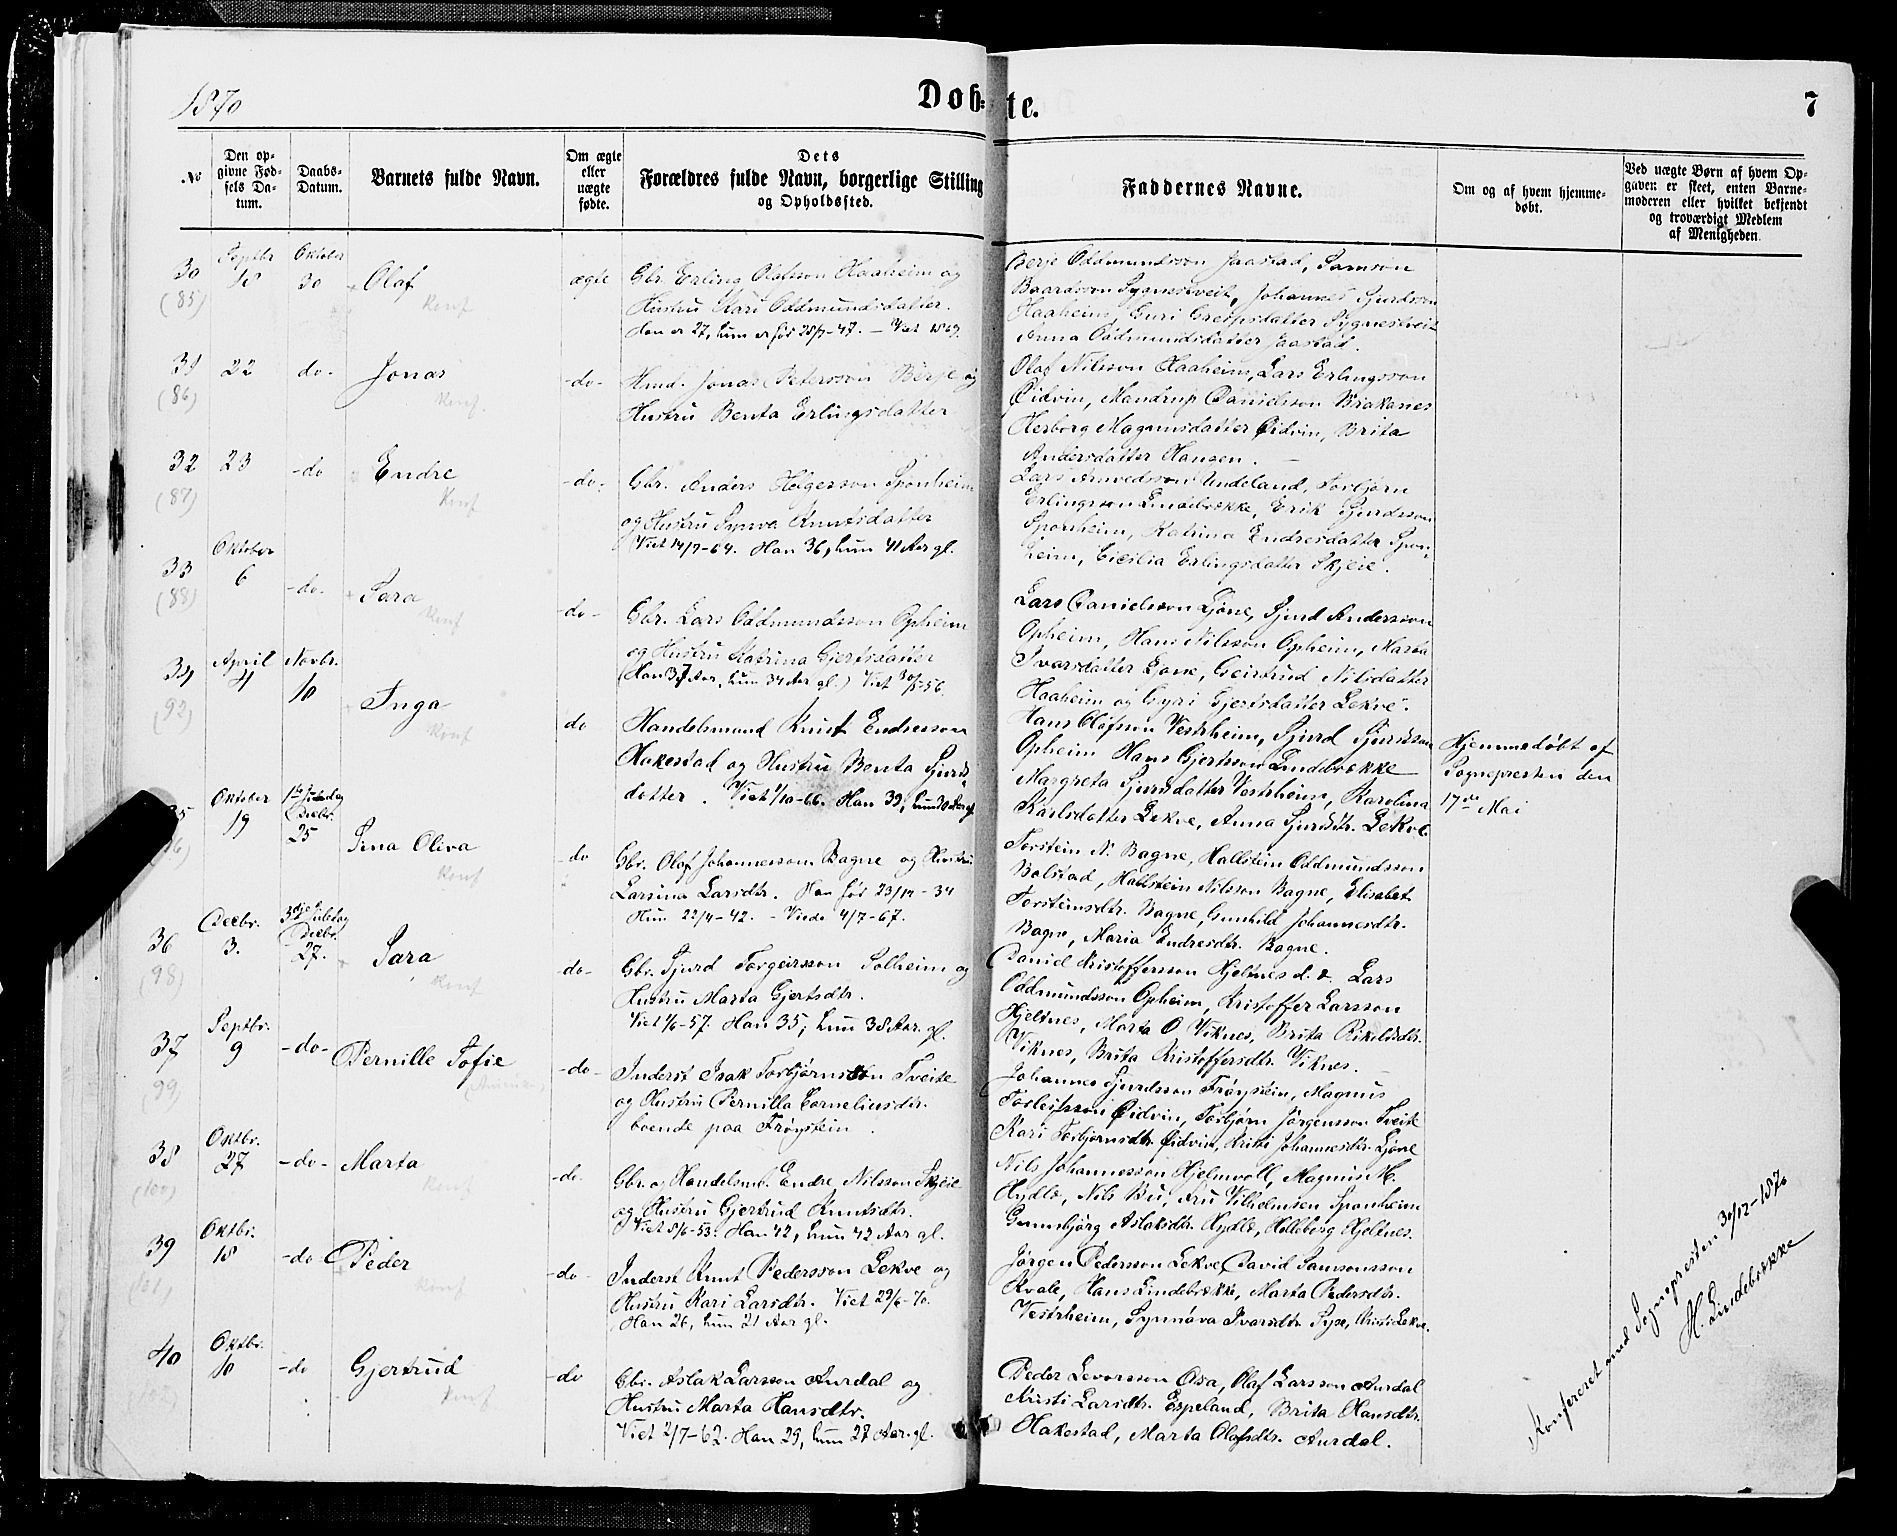 1870
Døb-te.
7
No
Den opgivne Fødsels Datum.
Daabs-Datum.
Barnets fulde Navn.
Om ægte eller uægte fødte.
Dets Forældres fulde Navn, borgerlige Stilling og Opholdssted.
Faddernes Navne.
Om og af hvem hjemmedøbt.
Ved uægte Børn af hvem Opgaven er skeet, enten Barnemoderen eller hvilket bekjendt og troværdigt Medlem af Menigheden.
30 (85)
Septbr 18
Oktober 30
Olaf
Konf
ægte
Gbr. Erling Olafsson Haaheim og
Hustru Kari Oddmundsdatter.
Han er 27, hun er før 28/7-47. — Viet 1869.
Oddmundsson Jaastad, Samson
Baardsson Sygnestveit, Johannes Sjurdsson
Haaheim, Guri Sygnestveit
Anna Oddmundsdatter Jaastad.
31 (86)
22
do-
Jonas
Konf.
-do-
Jonas Petersson og
Hustru Benta Erlingsdatter
Olaf Nilsson Haaheim, Lars Erlingsson
Øidvin, Mandrup Danielsson Brakanes
Herborg Magnusdatter Øidvin, Brita
Andersdatter Haugen. —
32 (87)
23
-do
Endre
Konf
-do-
Gbr. Anders Helgesson Sponheim
og Hustru Synva Knutsdatter
Viet 14/7-64. Han 36, hun 41 Aar gl.
Lars Undeland, Torbjørn
Erlingsson Lindebrække, Erik Sjurdsson
Sponheim, Katrina Endresdatter Spon-
heim, Cicilia Erlingsdatter Skjeie.
33 (88)
Oktober 6
-do-
Sara
Konf
-do-
Gbr. Lars Oddmundsson Opheim
og Hustru Katrina Gjertsdatter
(Han 37 Aar, hun 34 Aar gl.) Viet -56.
Lars Danielsson Ljone, Sjurd Andersson
Opheim, Hans Nilsson Opheim, Marta
Ivarsdatter Ljone, Geirtrud Nilsdatter
Haaheim og Gyri Gjertsdatter Lekve.
34 (92)
April 4
Novbr. 10
Inga
Konf
do
Handelsmand Knut Endresson
Hakestad og Hustru Benta Sjurds-
datter. Viet 1/10-66. Han 39, hun
Hans Olafsson Vestrheim, Sjurd Sjurdsson
Opheim Hans Gjertsson Lindebrække
Margreta Sjursdatter Vestrheim, Karolina
Karlsdatter Lekve, Anna Sjurdsdtr. Lekve
Hjemmedøbt af
Sognepresten den
17de Mai
Oktober 19
1ste Juledag Decbr. 25
Sina Oliva
Konf
-do
Gbr. Olaf Johannesson Bagne og Hustru
Larsina Larsdtr. Han før 23/12-34
Hun 22/4-42. - Viede 4/7-67.
Torstein N. Bagne, Hallstein Oddmundsson
Bolstad, Hallstein Nilsson Bagne, Elisabet
Torsteinsdtr. Bagne, Gunhild Johannesdtr.
Bagne, Maria Endresdtr. Bagne.
36 (98)
Decbr. 3.
3dje Juledag Decbr. 27.
Sara
Konf
-do-
Gbr. Sjurd Torgeirsson Solheim og
Hustru Marta Gjertsdtr.
Viet 1/6-57. Han 35, hun 38 Aar. gl.
Daniel Kristoffersson Hjeltnes d. æ. Lars
Oddmundsson Opheim, Kristoffer Larsson
Hjeltnes, Marta O Viknes, Brita
Viknes, Brita Kristoffersdtr. Viknes. —
37 (99)
Septbr. 9
-do-
Pernille Sofie
-do-
Inderst Isak Torbjørnsson Tveite
og Hustru Pernilla Corneliusdtr.
boende paa Frøystein.
Johannes Sjurdsson Frøystein, Magnus
Torleifsson Øidvin, Torbjørn Jørgensson Tveite
Kari Torbjørnsdtr. Øidvin, Kristi Johannesdtr. Ljone
38 (100)
Oktbr. 27
-do-
Marta
Konf
-do-
Gbr. og Handelsmd. Endre Nilsson Skjeie
og Hustru Gjertrud Knutsdtr.
Viet 5/6-53. Han 42, hun 42 Aar gl.
Nils Johannesson Hjelmvoll, Magnus M.
Hydle, Nils Bu, Fru Vilhelmsen Sponheim
Gunnbjørg Aslaksdtr. Hydle, Hjeltnes.
39
Oktbr. 18
-do
Peder
Konf
-do-
Inderst Knut Pedersson Lekve og
Hustru Kari Larsdtr. Viet 29/6-70.
Han 26, hun 21 Aar gl.
Jørgen Pedersson Lekve, David Samsonsson
Kvale, Hans Lindebrække, Marta Pedersdtr.
Vestrheim, Synnøva Ivarsdtr. Syse, Kristi Lekve.
40
Oktbr. 10
-do
Gjertrud
Konf
-do
Gbr. Aslak Larsson Aurdal og
Hustru Marta Hansdtr.
Viet 2/7-62. Han 29, hun 28 Aar gl.
Peder Levorsson Osa, Olaf Larsson Aurdal
Kristi Larsdtr. Espeland, Brita Hansdtr.
Hakestad, Marta Olafsdtr. Aurdal.
Konfereret med Sognepresten 30/12-1870
H. Lindebrække